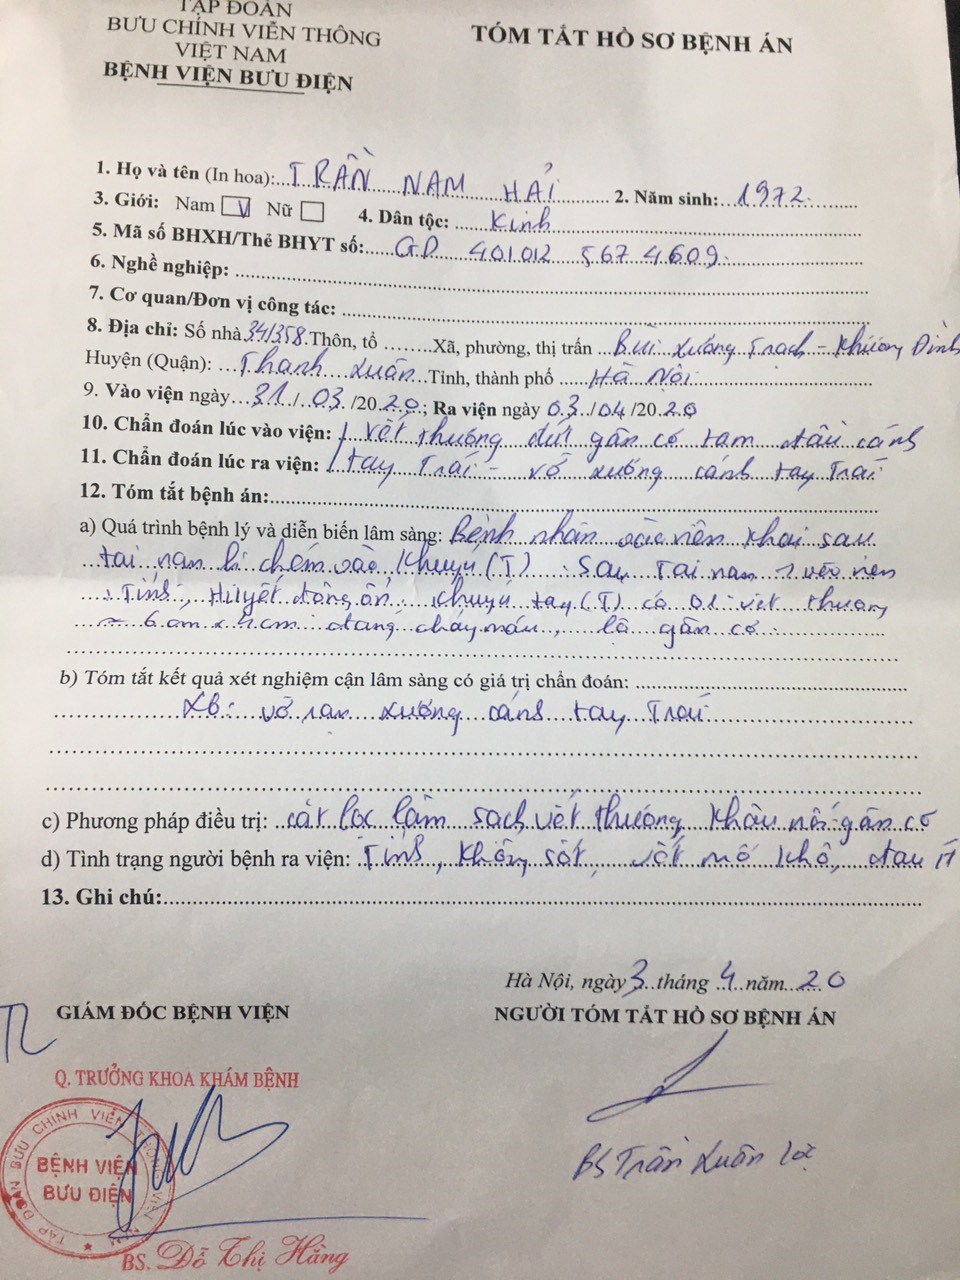 TẬP ĐOÀN
BƯU CHÍNH VIỄN THÔNG
VIỆT NAM
BỆNH VIỆN BƯU ĐIỆN
TÓM TẮT HỒ SƠ BỆNH ÁN
1. Họ và tên (In hoa): TRẦN NAM HẢI 2. Năm sinh: 1972
3. Giới: Nam V Nữ 4. Dân tộc: Kinh
5. Mã số BHXH/Thẻ BHYT số: GD 401012 567 4609
6. Nghề nghiệp:
7. Cơ quan/Đơn vị công tác:
8. Địa chỉ: Số nhà 34/358 Thôn, tổ ........ Xã, phường, thị trấn Bùi Xương Trạch - Khương Đình
Huyện (Quận): Thanh Xuân Tỉnh, thành phố Hà Nội
9. Vào viện ngày 31 / 03 /2020; Ra viện ngày 03 /04 /2020
10. Chẩn đoán lúc vào viện: vết thương đứt gân cơ tam đầu cánh
11. Chẩn đoán lúc ra viện: tay Trái - vỡ xương cánh tay Trái
12. Tóm tắt bệnh án:
a) Quá trình bệnh lý và diễn biến lâm sàng: Bệnh nhân vào viện khai sau
tai nạn bị chém vào khuỷu (T). Sau Tai nạn vào viện
Tỉnh, Huyết động ổn, khuỷu tay (T) có 01 vết thương
~ 6cm x 4cm đang chảy máu, lộ gân cơ.
b) Tóm tắt kết quả xét nghiệm cận lâm sàng có giá trị chẩn đoán:
vỡ rạn xương cánh tay Trái
c) Phương pháp điều trị: cắt lọc làm sạch vết thương, khâu nối gân cơ
d) Tình trạng người bệnh ra viện: Tỉnh, không sốt, vết mổ khô, đau ít
13. Ghi chú:
Hà Nội, ngày 3 tháng 4 năm 20
GIÁM ĐỐC BỆNH VIỆN
NGƯỜI TÓM TẮT HỒ SƠ BỆNH ÁN
TL
Q. TRƯỞNG KHOA KHÁM BỆNH
TẬP ĐOÀN BƯU CHÍNH VIỄN THÔNG VIỆT NAM
BỆNH VIỆN
BƯU ĐIỆN
BS Trần Xuân
BS. Đỗ Thị Hằng